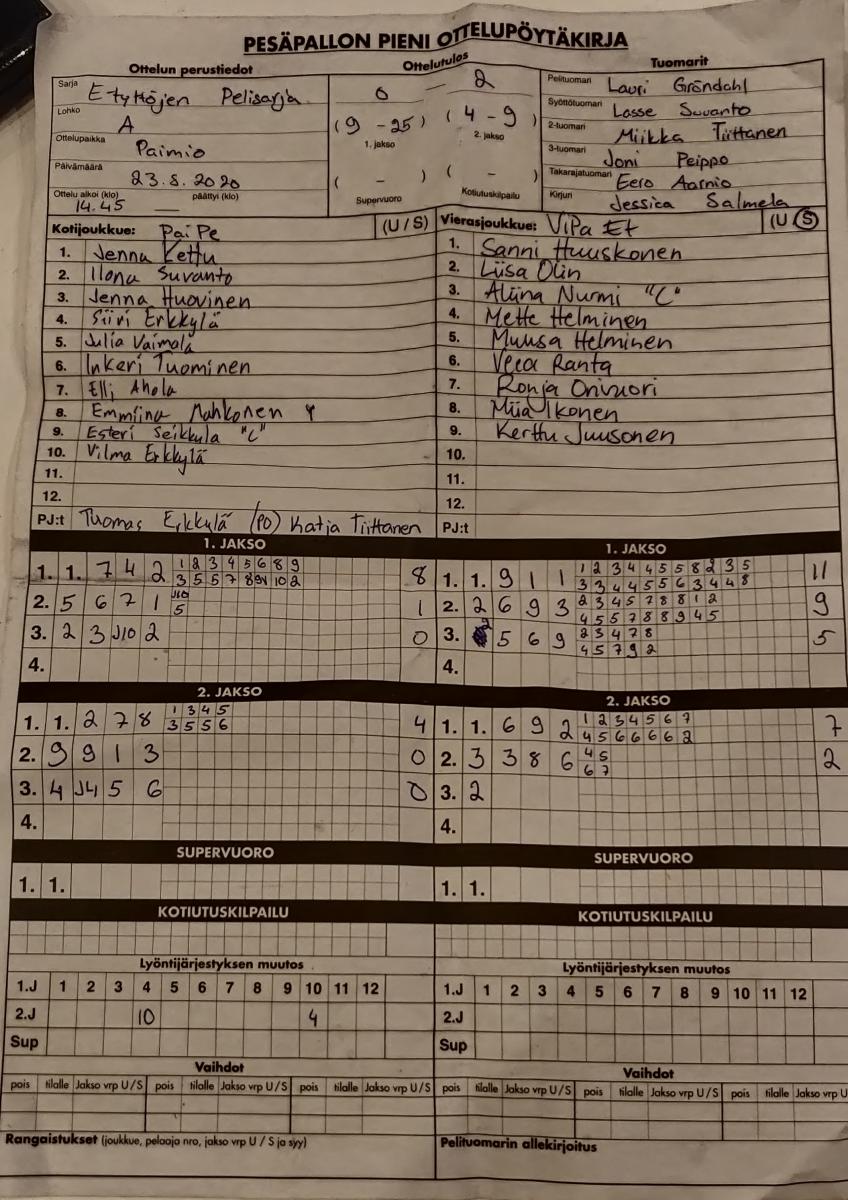 PESÄPALLON PIENI OTTELUPÖYTÄKIRJA
Ottelun perustiedot
Sarja E tyttöjen Pelisarja
Lohko A
Ottelupaikka Paimio
Päivämäärä 23.8.2020
Ottelu alkoi (klo) 14.45 päättyi (klo) —
Ottelutulos
0 – 2
(9 - 25) (4 - 9)
1. jakso 2. jakso
( - ) ( - )
Supervuoro Kotiutuskilpailu
Tuomarit
Pelituomari Lauri Gröndahl
Syöttötuomari Lasse Suvanto
2-tuomari Miikka Tiittanen
3-tuomari Joni Peippo
Takarajatuomari Eero Aarnio
Kirjuri Jessica Salmela
Kotijoukkue: PaiPe (U / S)
1. Jenna Kettu
2. Ilona Suvanto
3. Jenna Huovinen
4. Siiri Erkkylä
5. Julia Vaimala
6. Inkeri Tuominen
7. Elli Ahola
8. Emmiina Mahkonen
9. Esteri Seikkula "C"
10. Vilma Erkkylä
11.
12.
PJ:t Tuomas Erkkylä (PO) Katja Tiittanen
Vierasjoukkue: ViPa Et (U / S)
1. Sanni Huuskonen
2. Liisa Olin
3. Aliina Nurmi "C"
4. Mette Helminen
5. Muusa Helminen
6. Veea Ranta
7. Ronja Orivuori
8. Miia Ikonen
9. Kerttu Juusonen
10.
11.
12.
PJ:t
1. JAKSO
1. 1. 7 4 2 1 2 3 4 5 6 8 9 8
3 5 5 7 8 9 10 2
2. 5 6 7 1 J10 1
5
3. 2 3 J10 2 0
4.
2. JAKSO
1. 1. 2 7 8 1 3 4 5 4
3 5 5 6
2. 9 9 1 3 0
3. 4 J4 5 6 0
4.
SUPERVUORO
1. 1.
KOTIUTUSKILPAILU
Lyöntijärjestyksen muutos
1.J 1 2 3 4 5 6 7 8 9 10 11 12
2.J 10 4
Sup
Vaihdot
pois tilalle Jakso vrp U/S pois tilalle Jakso vrp U/S pois tilalle Jakso vrp U/S
Rangaistukset (joukkue, pelaaja nro, jakso vrp U / S ja syy)
1. JAKSO
1. 1. 9 1 1 1 2 3 4 4 5 5 8 2 3 5 11
3 3 4 4 5 5 6 3 4 4 8
2. 2 6 9 3 2 3 4 5 7 8 8 1 2 9
4 5 5 7 8 8 9 4 5
3. 2 5 6 9 2 3 4 7 8 5
4 5 7 9 2
4.
2. JAKSO
1. 1. 6 9 2 1 2 3 4 5 6 7 7
4 5 6 6 6 6 2
2. 3 3 8 6 4 5 2
6 7
3. 2
4.
SUPERVUORO
1. 1.
KOTIUTUSKILPAILU
Lyöntijärjestyksen muutos
1.J 1 2 3 4 5 6 7 8 9 10 11 12
2.J
Sup
Vaihdot
pois tilalle Jakso vrp U/S pois tilalle Jakso vrp U/S pois tilalle Jakso vrp U
Pelituomarin allekirjoitus